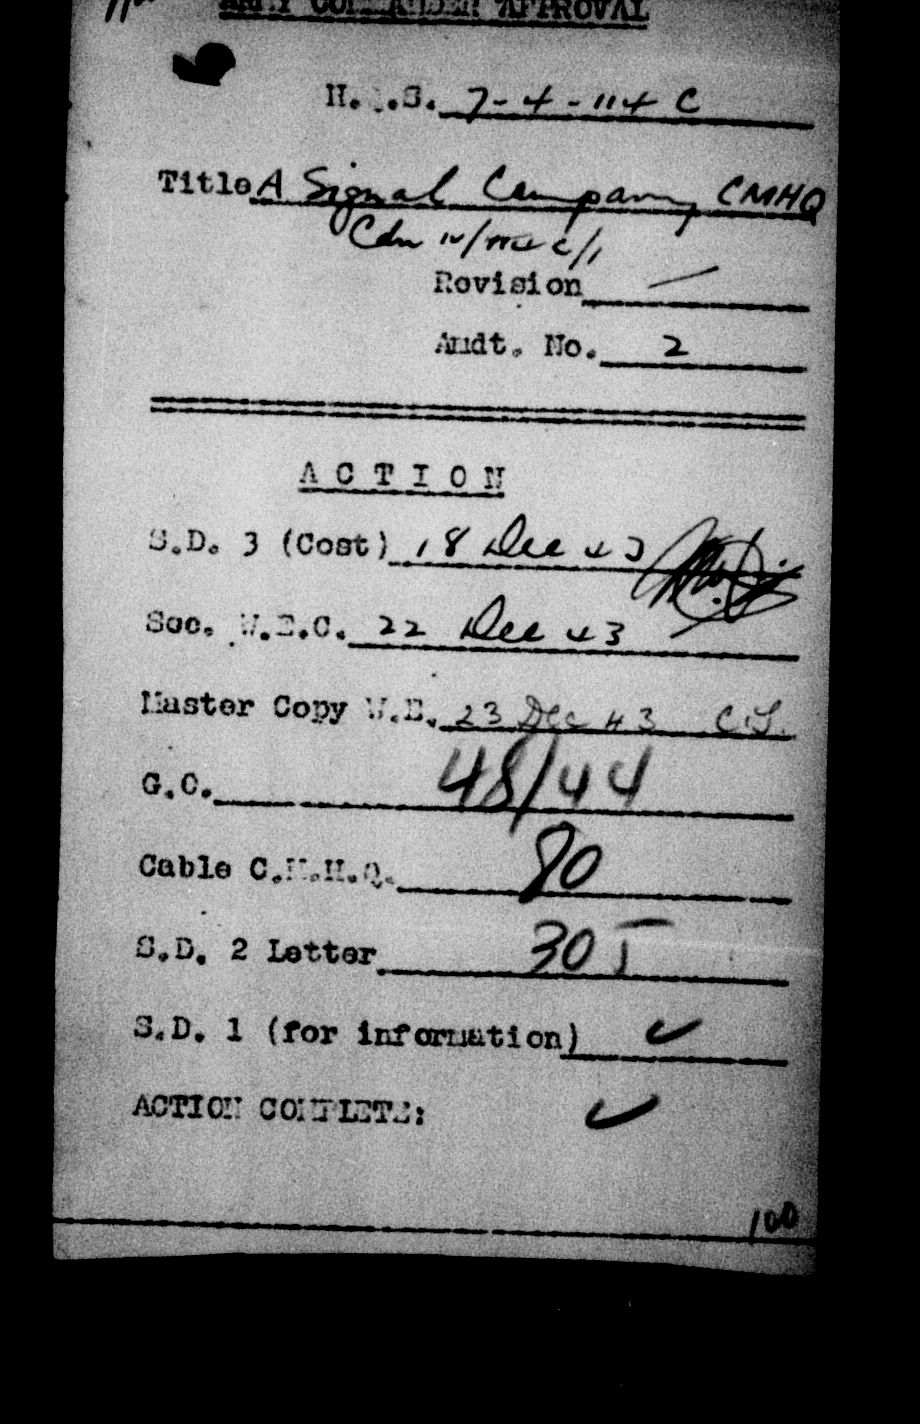 ARMY COMMANDER APPROVAL
H.Q.S. 7-4-114 C
Title A Signal Company CMHQ
Cdn
Revision —
Amdt. No. 2
ACTION
S.D. 3 (Cost) 18 Dec 43
Sec. W.E.C. 22 Dec 43
Master Copy W.E. 23 Dec 43 C.J.
G.O. 48/44
Cable C.M.H.Q. 90
S.D. 2 Letter 305
S.D. 1 (for information) ✓
ACTION COMPLETE: ✓
100